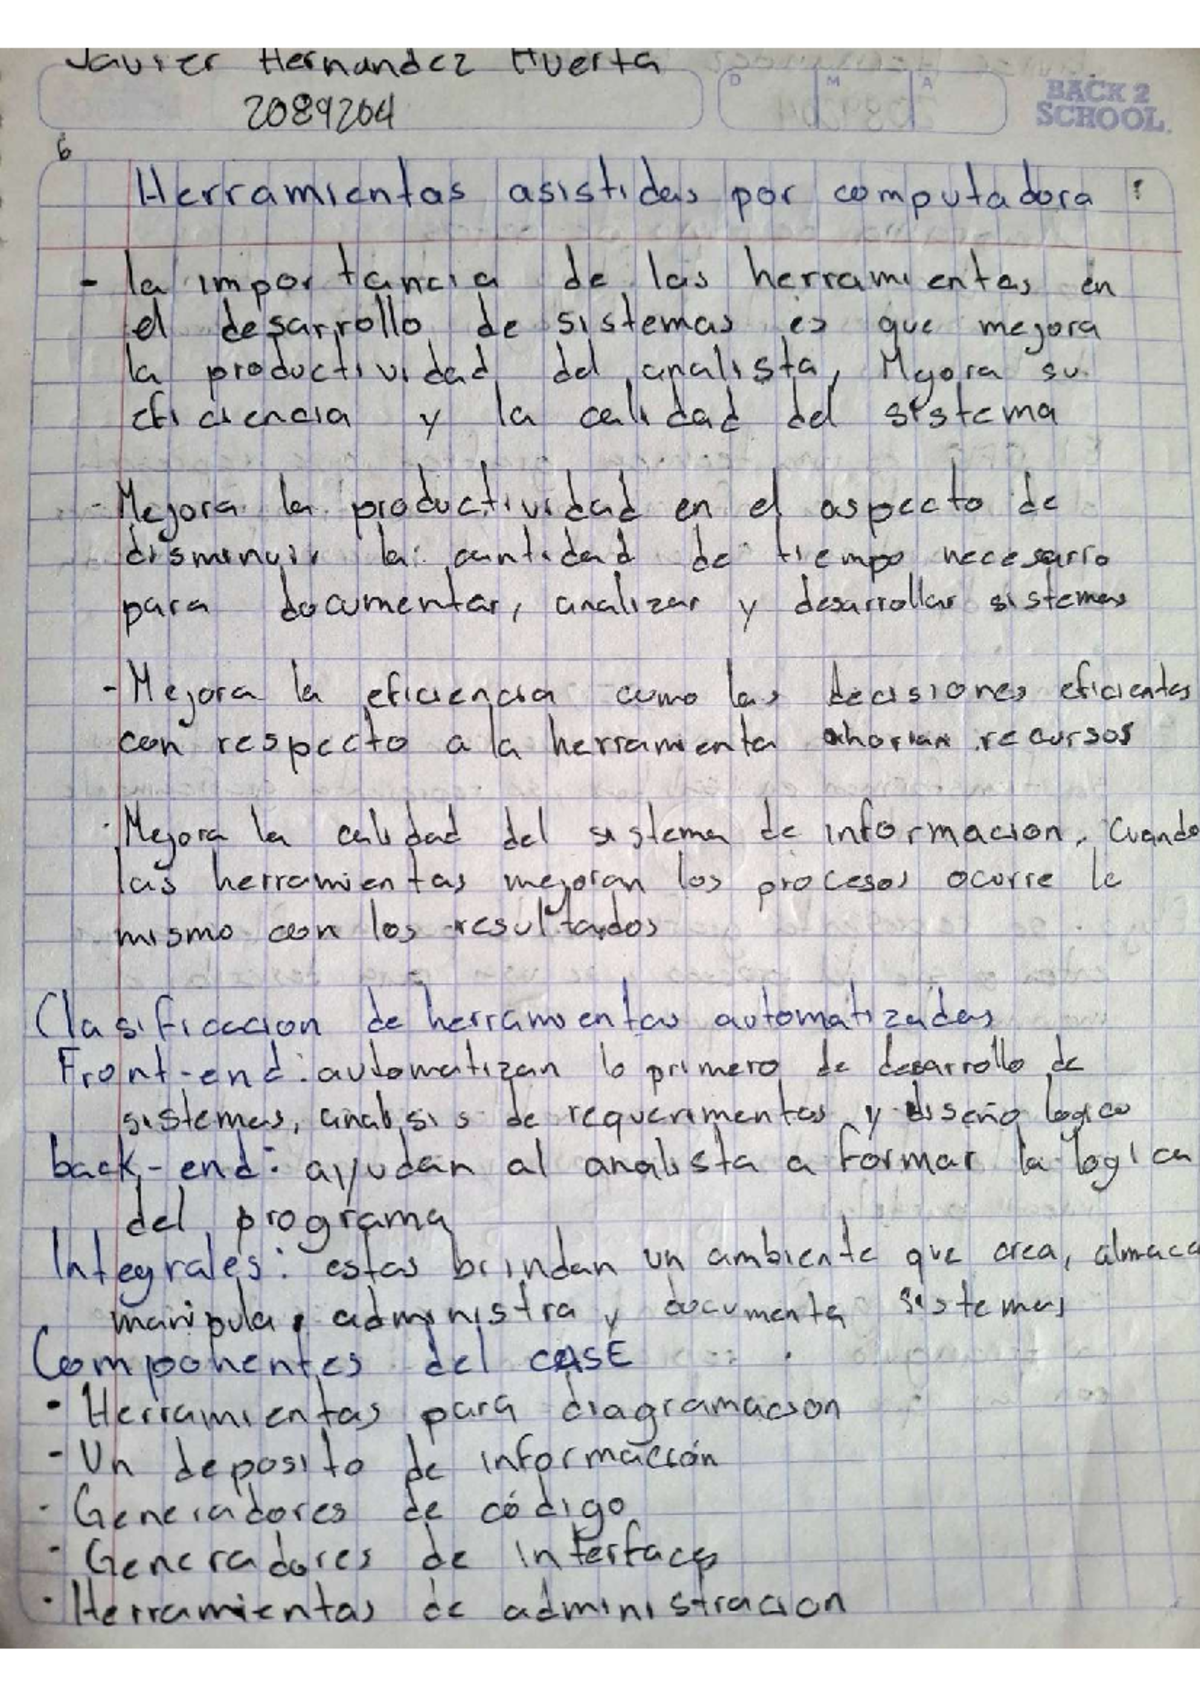 Javier Hernandez Huerta
D M A
BACK 2
SCHOOL
2089204
6
Herramientas asistidas por computadora
- la importancia de las herramientas en
el desarrollo de sistemas es que mejora
la productividad del analista, Mejora su
eficiencia y la calidad del sistema
- Mejora la productividad en el aspecto de
disminuir la cantidad de tiempo necesario
para documentar, analizar y desarrollar sistemas
- Mejora la eficiencia como las decisiones eficientes
con respecto a la herramienta ahorran recursos
- Mejora la calidad del sistema de informacion. Cuando
las herramientas mejoran los procesos ocurre lo
mismo con los resultados
Clasificacion de herramientas automatizadas
Front-end: automatizan lo primero de desarrollo de
sistemas, analisis de requerimentos y diseño logico
back-end: ayudan al analista a formar la logica
del programa
Integrales: estas brindan un ambiente que crea, almaca
manipula, administra y documenta sistemas
Componentes del CASE
- Herramientas para diagramacion
- Un deposito de información
- Generadores de código
- Generadores de interfaces
- Herramientas de administracion